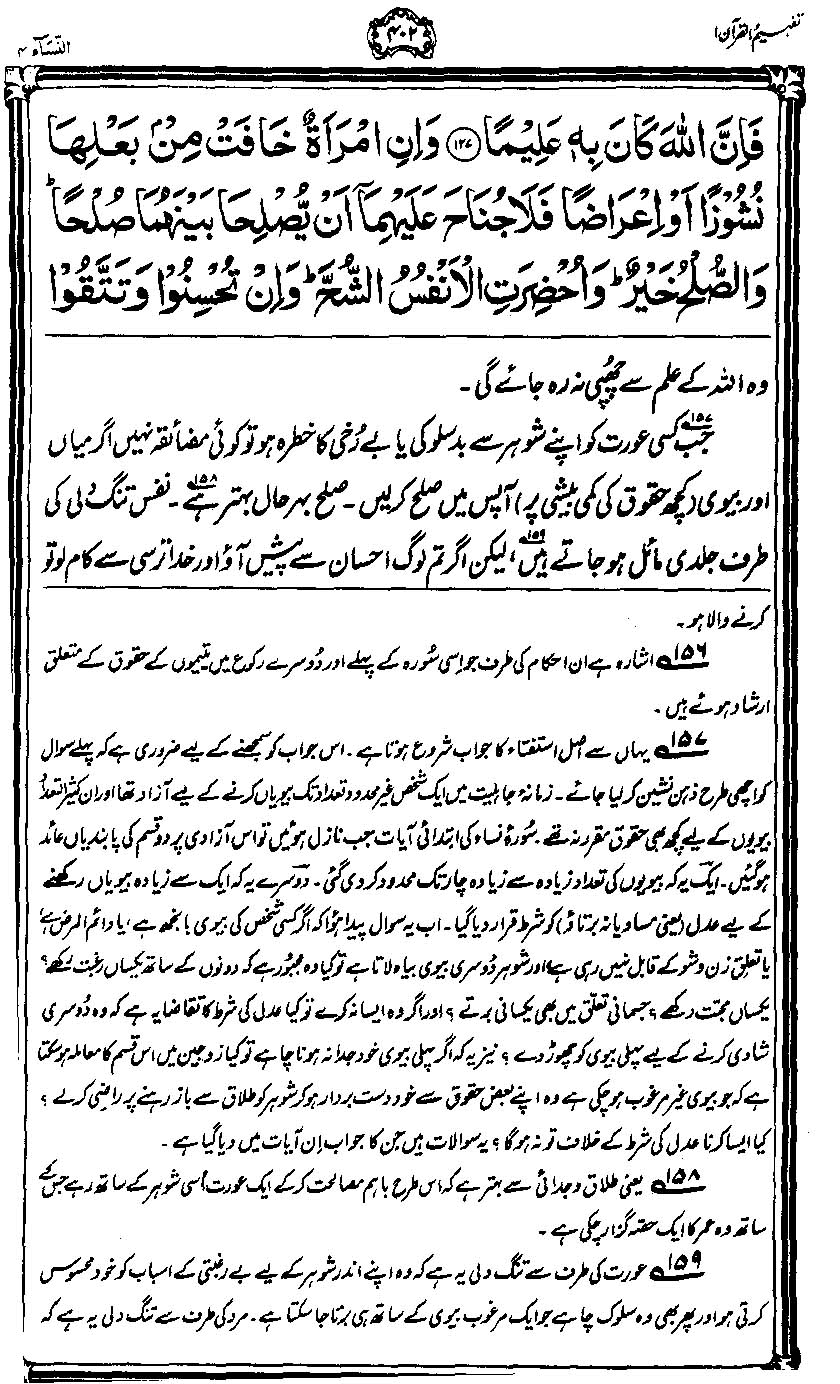 تفہیم القرآن ۱
۴۰۲
النساء ۴
فَاِنَّ اللّٰهَ كَانَ بِهٖ عَلِيْمًا ﴿۱۲۷﴾ وَاِنِ امْرَاَةٌ خَافَتْ مِنْۢ بَعْلِهَا
نُشُوْزًا اَوْ اِعْرَاضًا فَلَا جُنَاحَ عَلَيْهِمَاۤ اَنْ يُّصْلِحَا بَيْنَهُمَا صُلْحًا ؕ
وَالصُّلْحُ خَيْرٌ ؕ وَاُحْضِرَتِ الْاَنْفُسُ الشُّحَّ ؕ وَاِنْ تُحْسِنُوْا وَتَتَّقُوْا
وہ اللہ کے علم سے چھپی نہ رہ جائے گی۔
جب۱۵۷ کسی عورت کو اپنے شوہر سے بدسلوکی یا بے رُخی کا خطرہ ہو تو کوئی مضائقہ نہیں اگر میاں
اور بیوی (کچھ حقوق کی کمی بیشی پر) آپس میں صلح کر لیں۔ صلح بہر حال بہتر ہے۱۵۸۔ نفس تنگ دلی کی
طرف جلدی مائل ہو جاتے ہیں۱۵۹، لیکن اگر تم لوگ احسان سے پیش آؤ اور خدا ترسی سے کام لو تو
کرنے والا ہو۔
۱۵۶ اشارہ ہے ان احکام کی طرف جو اسی سُورہ کے پہلے اور دُوسرے رکوع میں یتیموں کے حقوق کے متعلق
ارشاد ہوئے ہیں۔
۱۵۷ یہاں سے اصل استفتاء کا جواب شروع ہوتا ہے۔ اس جواب کو سمجھنے کے لیے ضروری ہے کہ پہلے سوال
کو اچھی طرح ذہن نشین کر لیا جائے۔ زمانۂ جاہلیت میں ایک شخص غیر محدود تعداد تک بیویاں کرنے کے لیے آزاد تھا اور ان کثیر التعداد
بیویوں کے لیے کچھ بھی حقوق مقرر نہ تھے۔ سُورۂ نساء کی ابتدائی آیات جب نازل ہوئیں تو اس آزادی پر دو قسم کی پابندیاں عائد
ہو گئیں۔ ایک یہ کہ بیویوں کی تعداد زیادہ سے زیادہ چار تک محدود کر دی گئی۔ دوسرے یہ کہ ایک سے زیادہ بیویاں رکھنے
کے لیے عدل (یعنی مساویانہ برتاؤ) کو شرط قرار دیا گیا۔ اب یہ سوال پیدا ہوا کہ اگر کسی شخص کی بیوی بانجھ ہے، یا دائم المرض ہے
یا تعلق زن و شو کے قابل نہیں رہی ہے اور شوہر دُوسری بیوی بیاہ لاتا ہے تو کیا وہ مجبور ہے کہ دونوں کے ساتھ یکساں رغبت رکھے؟
یکساں محبت رکھے؟ جسمانی تعلق میں بھی یکسانی برتے؟ اور اگر وہ ایسا نہ کرے تو کیا عدل کی شرط کا تقاضا یہ ہے کہ وہ دُوسری
شادی کرنے کے لیے پہلی بیوی کو چھوڑ دے؟ نیز یہ کہ اگر پہلی بیوی خود جدا نہ ہونا چاہے تو کیا زوجین میں اس قسم کا معاملہ ہو سکتا
ہے کہ جو بیوی غیر مرغوب ہو چکی ہے وہ اپنے بعض حقوق سے خود دست بردار ہو کر شوہر کو طلاق سے باز رہنے پر راضی کرلے؟
کیا ایسا کرنا عدل کی شرط کے خلاف تو نہ ہوگا؟ یہ سوالات ہیں جن کا جواب اِن آیات میں دیا گیا ہے۔
۱۵۸ یعنی طلاق و جدائی سے بہتر ہے کہ اس طرح باہم مصالحت کر کے ایک عورت اُسی شوہر کے ساتھ رہے جس کے
ساتھ وہ عمر کا ایک حصّہ گزار چکی ہے۔
۱۵۹ عورت کی طرف سے تنگ دلی یہ ہے کہ وہ اپنے اندر شوہر کے لیے بے رغبتی کے اسباب کو خود محسوس
کرتی ہو اور پھر بھی وہ سلوک چاہے جو ایک مرغوب بیوی کے ساتھ ہی برتا جا سکتا ہے۔ مرد کی طرف سے تنگ دلی یہ ہے کہ